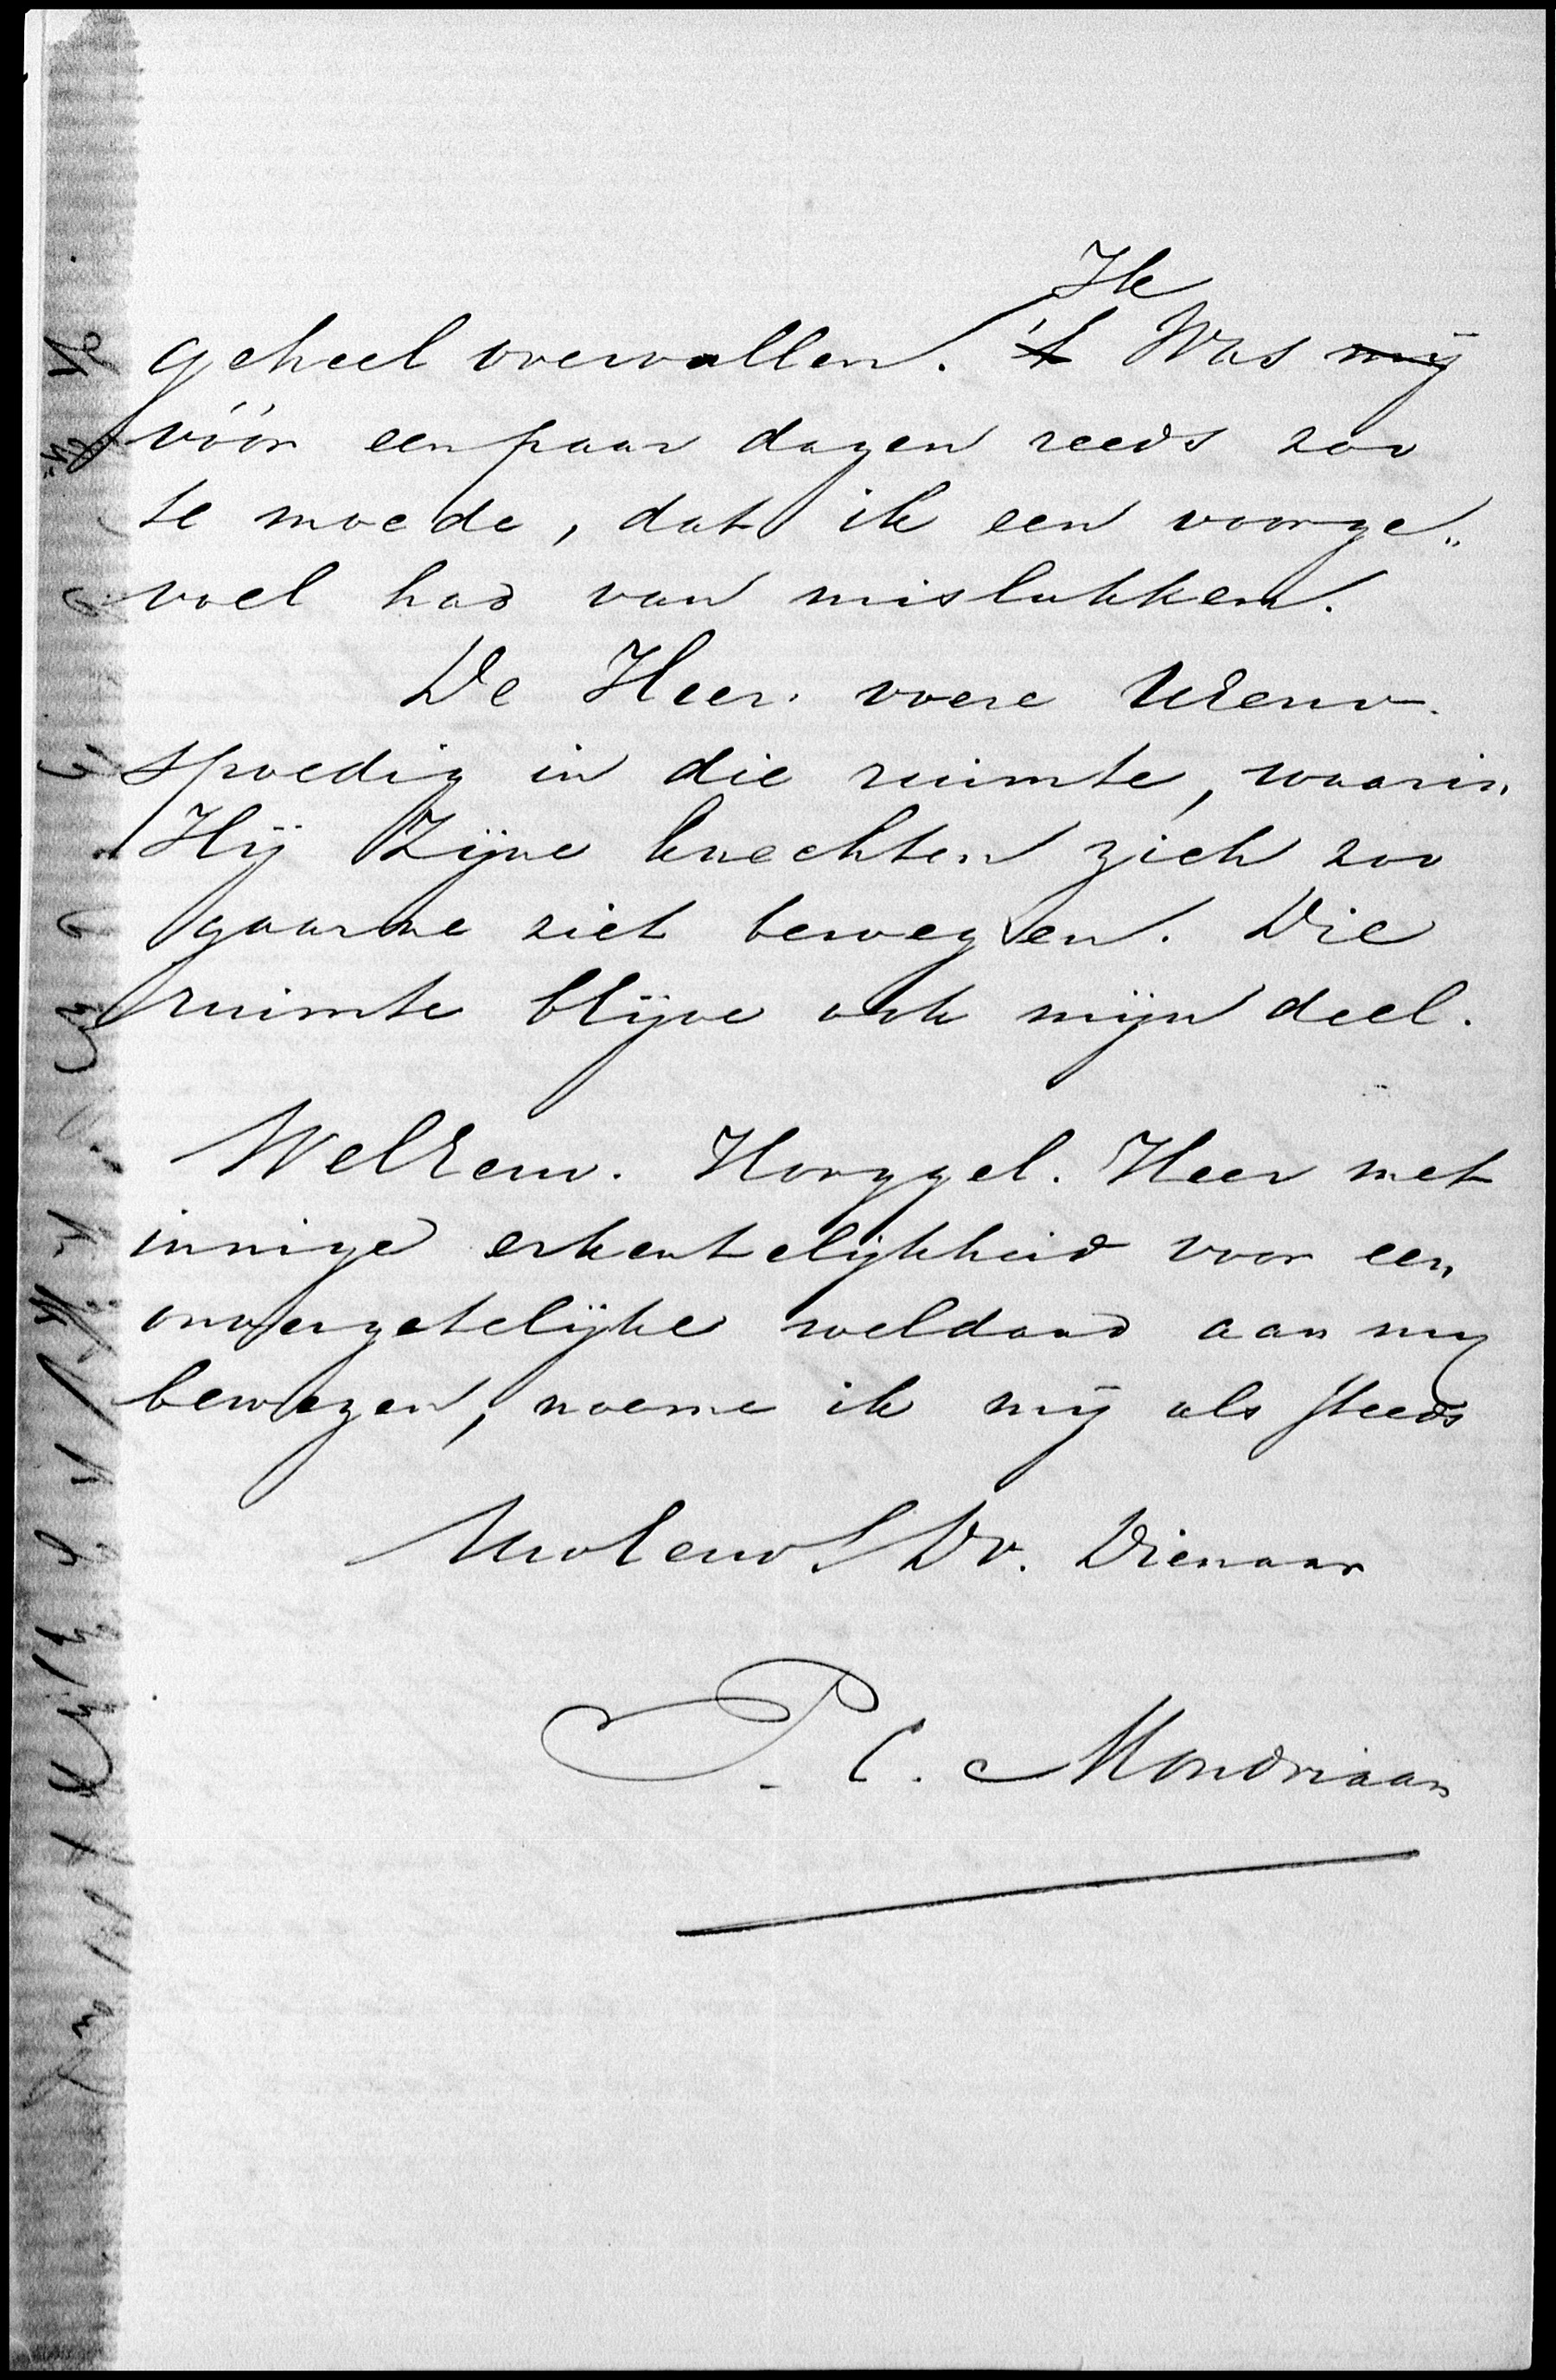 Ik
geheel overvallen. 't Was mij
vóór een paar dagen reeds zoo
te moede, dat ik een voorge„
voel had van mislukken.
De Heer voere UEerw.
spoedig in die ruimte, waarin
Hij Zijne knechten zich zoo
gaarne ziet bewegen. Die
ruimte blijve ook mijn deel.
WelEerw. Hooggel. Heer met
innige erkentelijkheid voor een
onvergetelijke weldaad aan mij
bewezen, noeme ik mij als steeds
UwelEerw. Dv. Dienaar
P. C. Mondriaan